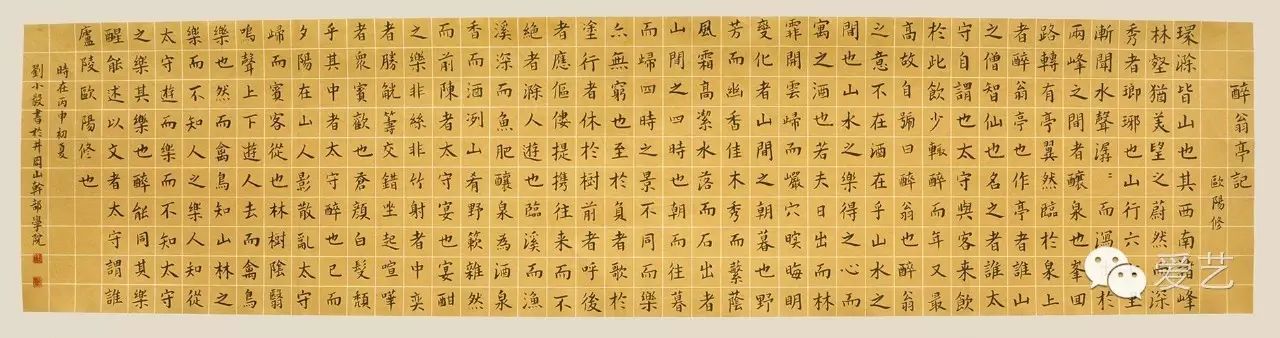 醉翁亭記
歐陽修
環滁皆山也其西南諸峰
林壑猶美望之蔚然而深
秀者瑯琊也山行六
漸聞水聲潺〃而瀉於
兩峰之間者釀泉也峯回
路轉有亭翼然臨於泉上
者醉翁亭也作亭者誰山
之僧智仙也名之者誰太
守自謂也太守與客来飲
於此飲少輒醉而年又最
高故自號曰醉翁也醉翁
之意不在酒在乎山水之
間也山水之樂得之心而
寓之酒也若夫日出而林
霏開雲歸而巖穴暝晦明
變化者山間之朝暮也野
芳而幽香佳木秀而蘩蔭
風霜高潔水落而石出者
山間之四時也朝而往暮
而歸四時之景不同而樂
亦無窮也至於負者歌於
塗行者休於樹前者呼後
者應傴僂提携往来而不
絕者滁人遊也臨溪而漁
溪深而魚肥釀泉為酒泉
香而酒洌山肴野蔌雜然
而前陳者太守宴也宴酣
之樂非絲非竹射者中奕
者勝觥籌交錯坐起喧嘩
者衆賓歡也蒼顏白髮頹
乎其中者太守醉也已而
夕陽在山人影散亂太守
歸而賓客從也林樹陰翳
鳴聲上下遊人去而禽鳥
樂也然而禽鳥知山林之
樂而不知人之樂人知從
太守遊而樂而不知太守
之樂其樂也醉能同其樂
醒能述以文者太守謂誰
廬陵歐陽修也
時在丙申初夏
劉小毅書於井岡山幹部學院
爱艺